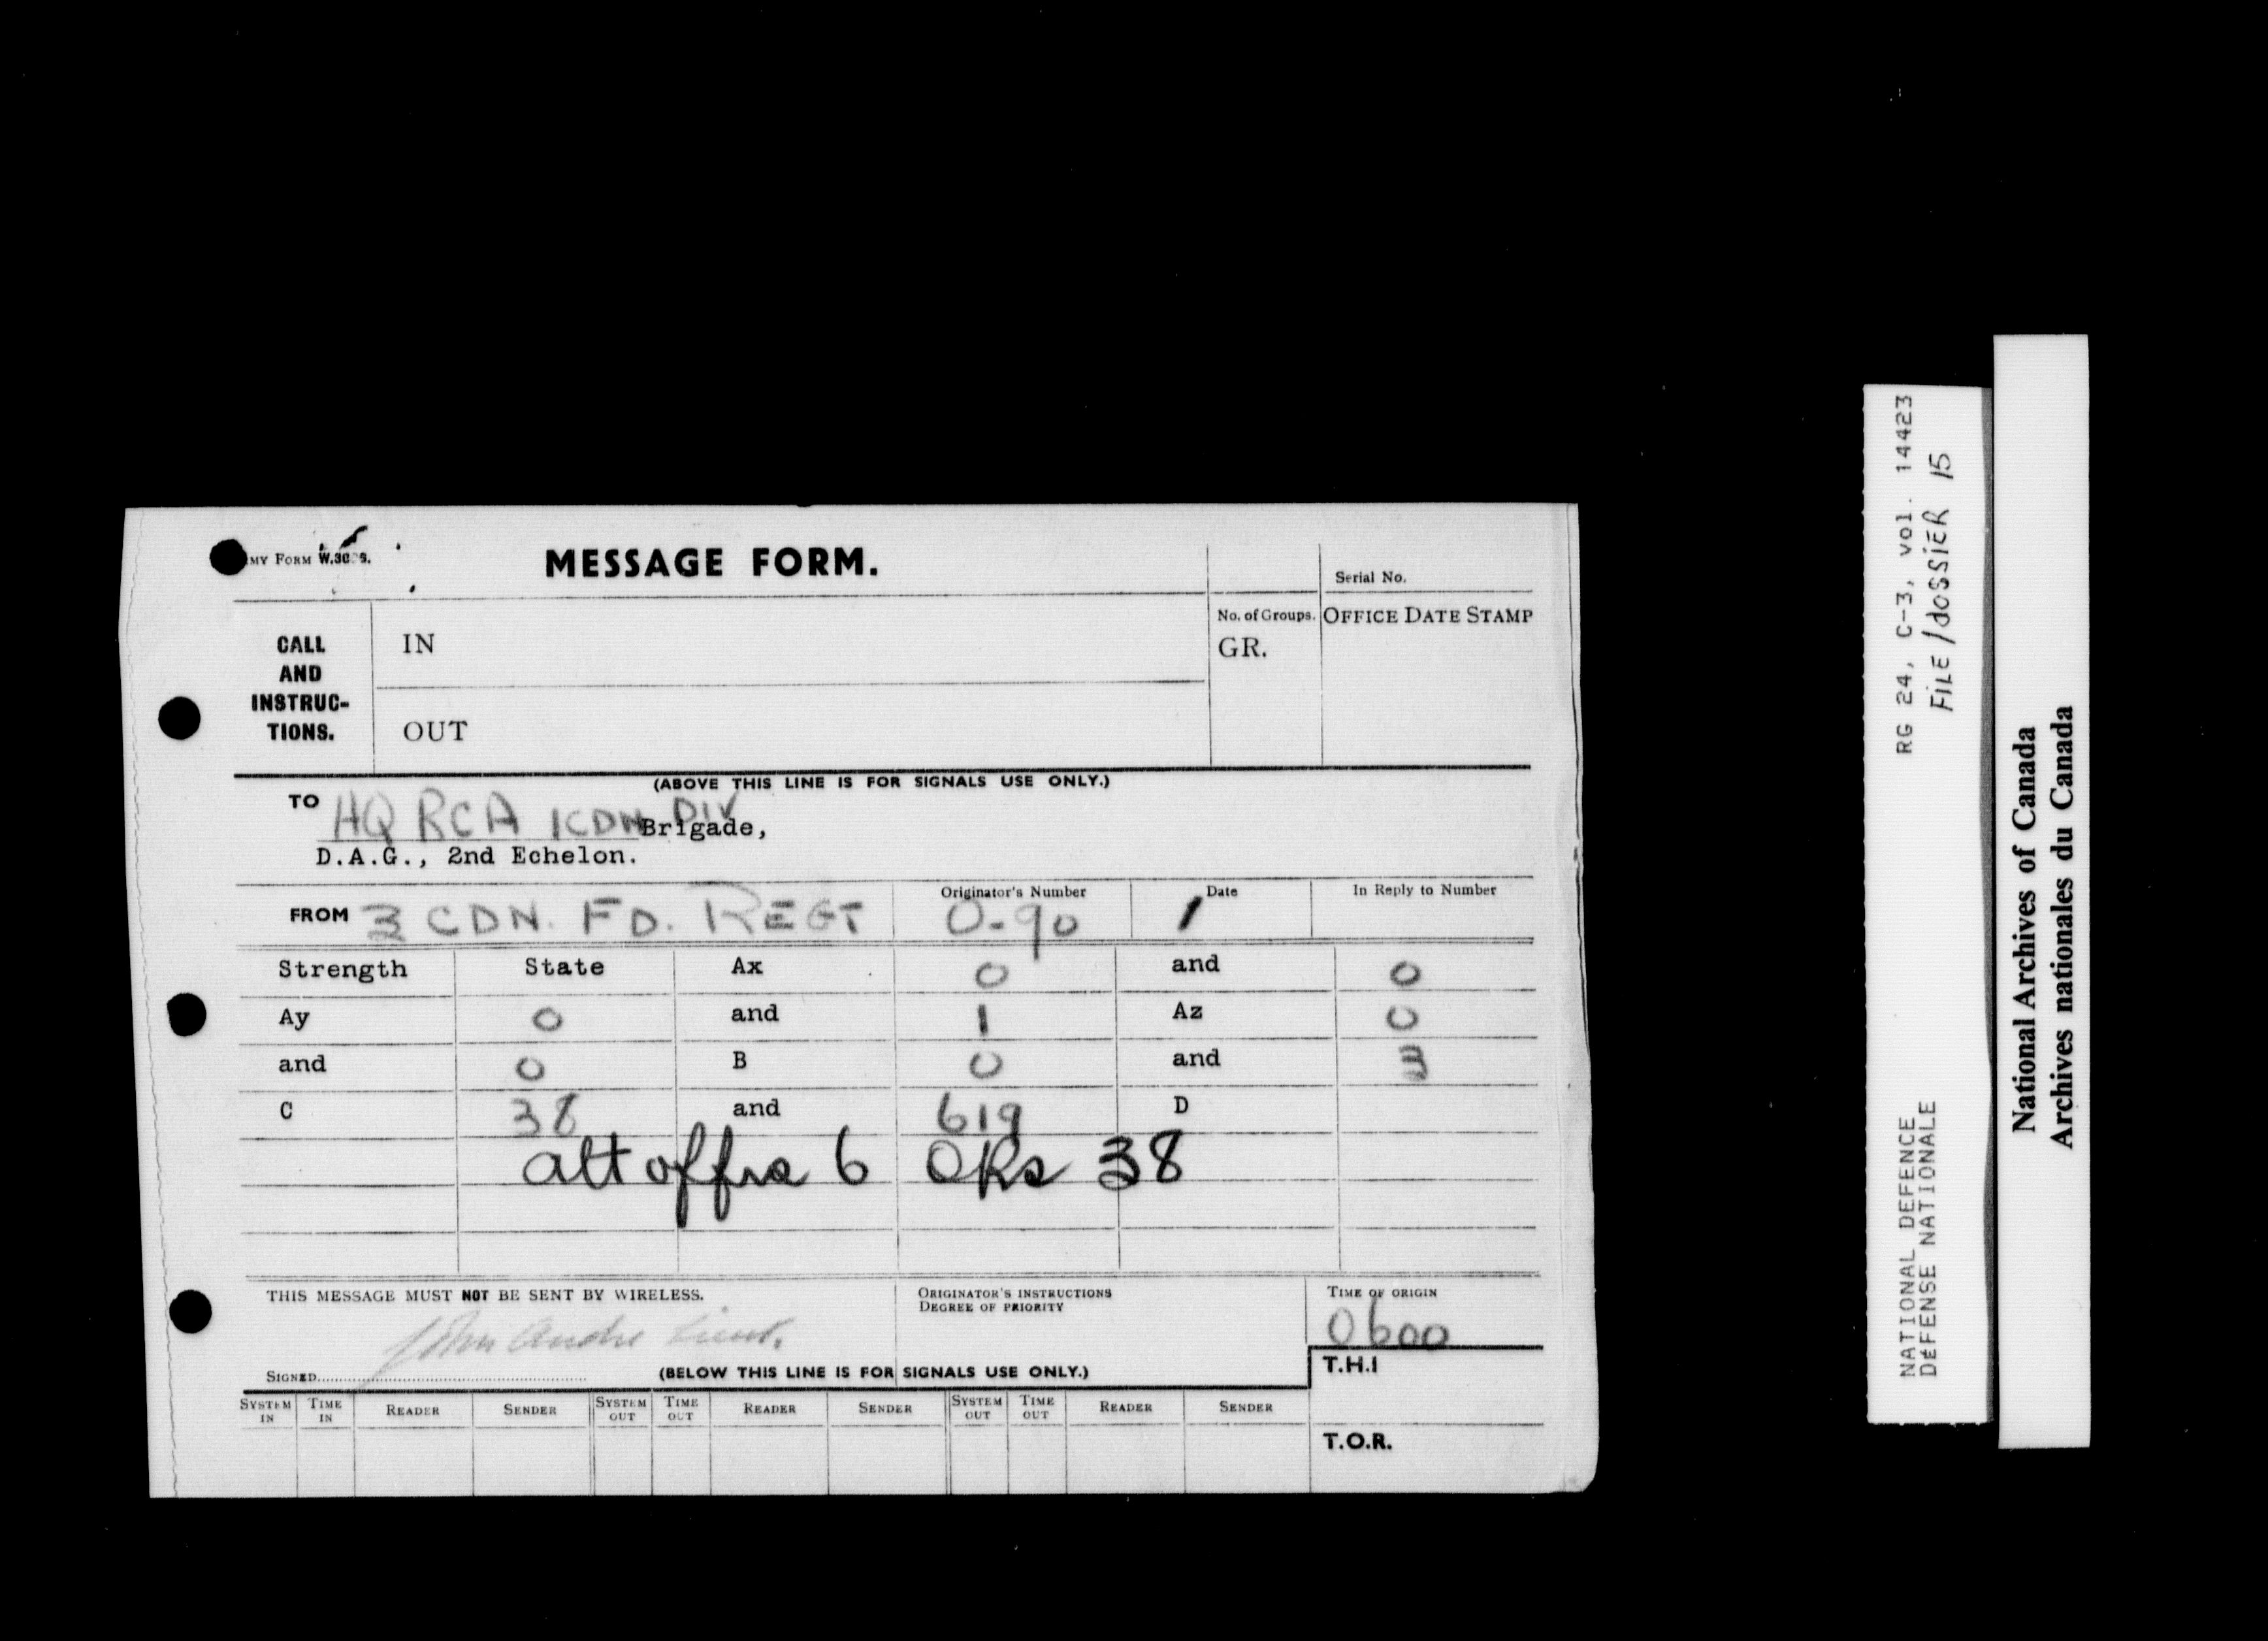 MY FORM W.30
MESSAGE FORM.
Serial No.
CALL AND INSTRUC-TIONS.
IN
No. of Groups.
GR.
OFFICE DATE STAMP
OUT
(ABOVE THIS LINE IS FOR SIGNALS USE ONLY.)
TO HQ RCA 1CDN DIV Brigade,
D.A.G., 2nd Echelon.
FROM 3 CDN. FD. REGT
Originator's Number
O-90
Date
1
In Reply to Number
Strength State Ax 0 and 0
Ay 0 and 1 Az 0
and 0 B 0 and 3
C 38 and 619 D
att offrs 6 ORs 38
THIS MESSAGE MUST NOT BE SENT BY WIRELESS.
ORIGINATOR'S INSTRUCTIONS
DEGREE OF PRIORITY
TIME OF ORIGIN
0600
John Andre Lieut.
SIGNED
(BELOW THIS LINE IS FOR SIGNALS USE ONLY.)
T.H.I
SYSTEM IN TIME IN READER SENDER SYSTEM OUT TIME OUT READER SENDER SYSTEM OUT TIME OUT READER SENDER
T.O.R.
RG 24, C-3, vol. 14423
FILE/dossier 15
NATIONAL DEFENCE
DEFENSE NATIONALE
National Archives of Canada
Archives nationales du Canada